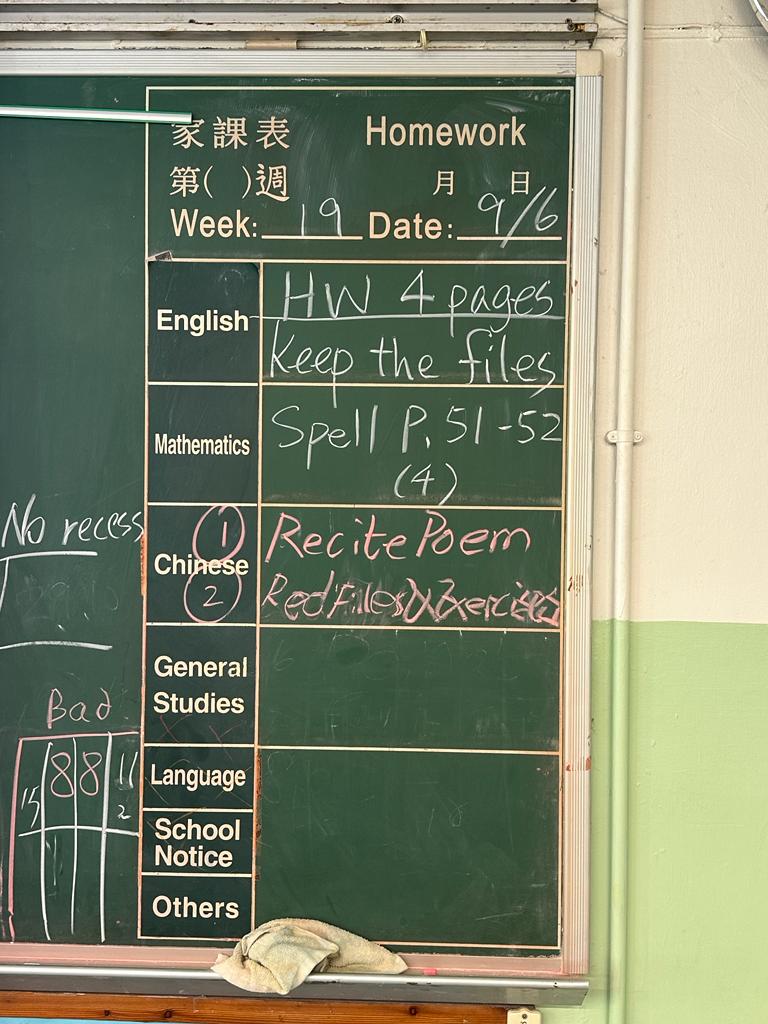 家課表 Homework
第( )週 月 日
Week: 19 Date: 9/6
English HW 4 pages
Keep the files
Mathematics Spell P. 51-52
(4)
Chinese
① Recite Poem
② Red Files
General
Studies
Language
School
Notice
Others
No recess
Bad
15 8 8 11
2